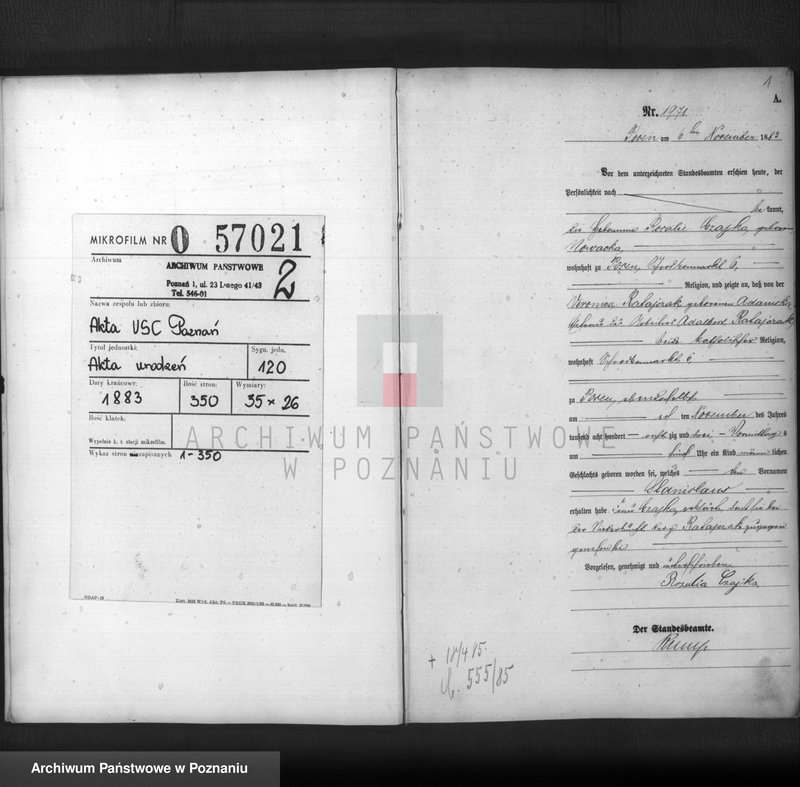 MIKROFILM NR 0 57021
Archiwum
ARCHIWUM PAŃSTWOWE
Poznań 1, ul. 23 Lutego 41/43
Tel. 546-01
2
Nazwa zespołu lub zbioru:
Akta USC Poznań
Tytuł jednostki:
Akta urodzeń
Sygn. jedn.
120
Daty krańcowe:
1883
Ilość stron:
350
Wymiary:
35 × 26
Ilość klatek:
Wypełnia k. t. stacji mikrofilm.
Wykaz stron zapisanych 1-350
1
A.
Nr. 1971
Posen am 6 ten November 1883
Vor dem unterzeichneten Standesbeamten erschien heute, der
Persönlichkeit nach
be kannt,
die Hebamme Rosalie Czajka, geborene
Nowacka,
wohnhaft zu Posen, Schrodkamarkt 6,
Religion, und zeigte an, daß von der
Veronica Ratajczak geborenen Adamska,
Ehefrau des Adalbert Ratajczak,
beide katholischer Religion,
wohnhaft Schrodkamarkt 6
zu Posen, ebendaselbst
am ten November des Jahres
tausend acht hundert acht zig und drei, Vormittags
um fünf Uhr ein Kind männ lichen
Geschlechts geboren worden sei, welches den Vornamen
Stanislaus
erhalten habe. Frau Czajka, erklärte, daß sie bei
der Niederkunft der Ratajczak zugegen
gewesen sei
Vorgelesen, genehmigt und unterschrieben
Rozalia Czajka
Der Standesbeamte.
+ 18/4 85.
N. 555/85
ARCHIWUM PAŃSTWOWE
W POZNANIU
Archiwum Państwowe w Poznaniu